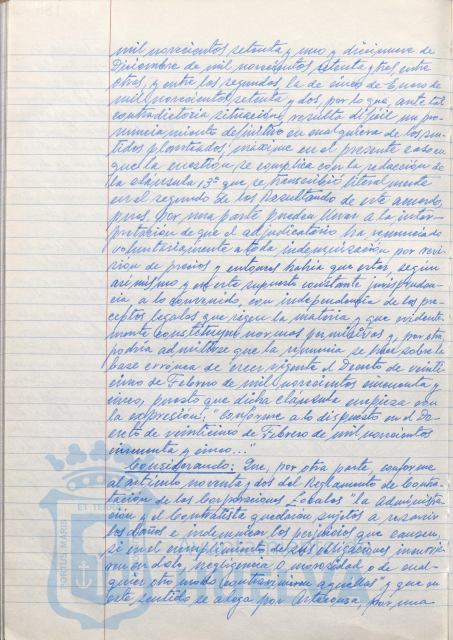 mil novecientos setenta y uno y diecinueve de
Diciembre de mil novecientos setenta y tres, entre
otras, y entre las segundas la de cinco de Enero de
mil novecientos setenta y dos, por lo que, ante tal
contradictoria situación, resulta difícil un pro-
nunciamiento definitivo en cualquiera de los sen-
tidos planteados, máxime en el presente caso en
que la cuestión se complica con la redacción de
la cláusula 13ª que se transcribió literalmente
en el segundo de los Resultandos de este acuerdo,
pues por una parte pueden llevar a la inter-
pretación de que el adjudicatario ha renunciado
voluntariamente a toda indemnización por revi-
sión de precios y entonces habría que estar, según
así mismo y en este supuesto constante jurispruden-
cia, a lo convenido, con independencia de los pre-
ceptos legales que rigen la materia y que evidente-
mente constituyen normas permisivas y, por otra
podría admitirse que la renuncia se hizo sobre la
base errónea de creer vigente el Decreto de veinti-
cinco de Febrero de mil novecientos cincuenta y
cinco, puesto que dicha cláusula empieza con
la expresión, "Conforme a lo dispuesto en el De-
creto de veinticinco de Febrero de mil novecientos
cincuenta y cinco..."
Considerando: Que, por otra parte, conforme
al artículo noventa y dos del Reglamento de Contra-
tación de las Corporaciones Locales "la Administra-
ción y el Contratista quedarán sujetos a resarcir
los daños e indemnizar los perjuicios que causen,
si en el cumplimiento de sus obligaciones incurrie-
ren en dolo, negligencia o morosidad o de cual-
quier otro modo contravinieren aquéllas" y que en
este sentido se alega por Astaconsa, por una
ET TERRA
PORTUS MARIS